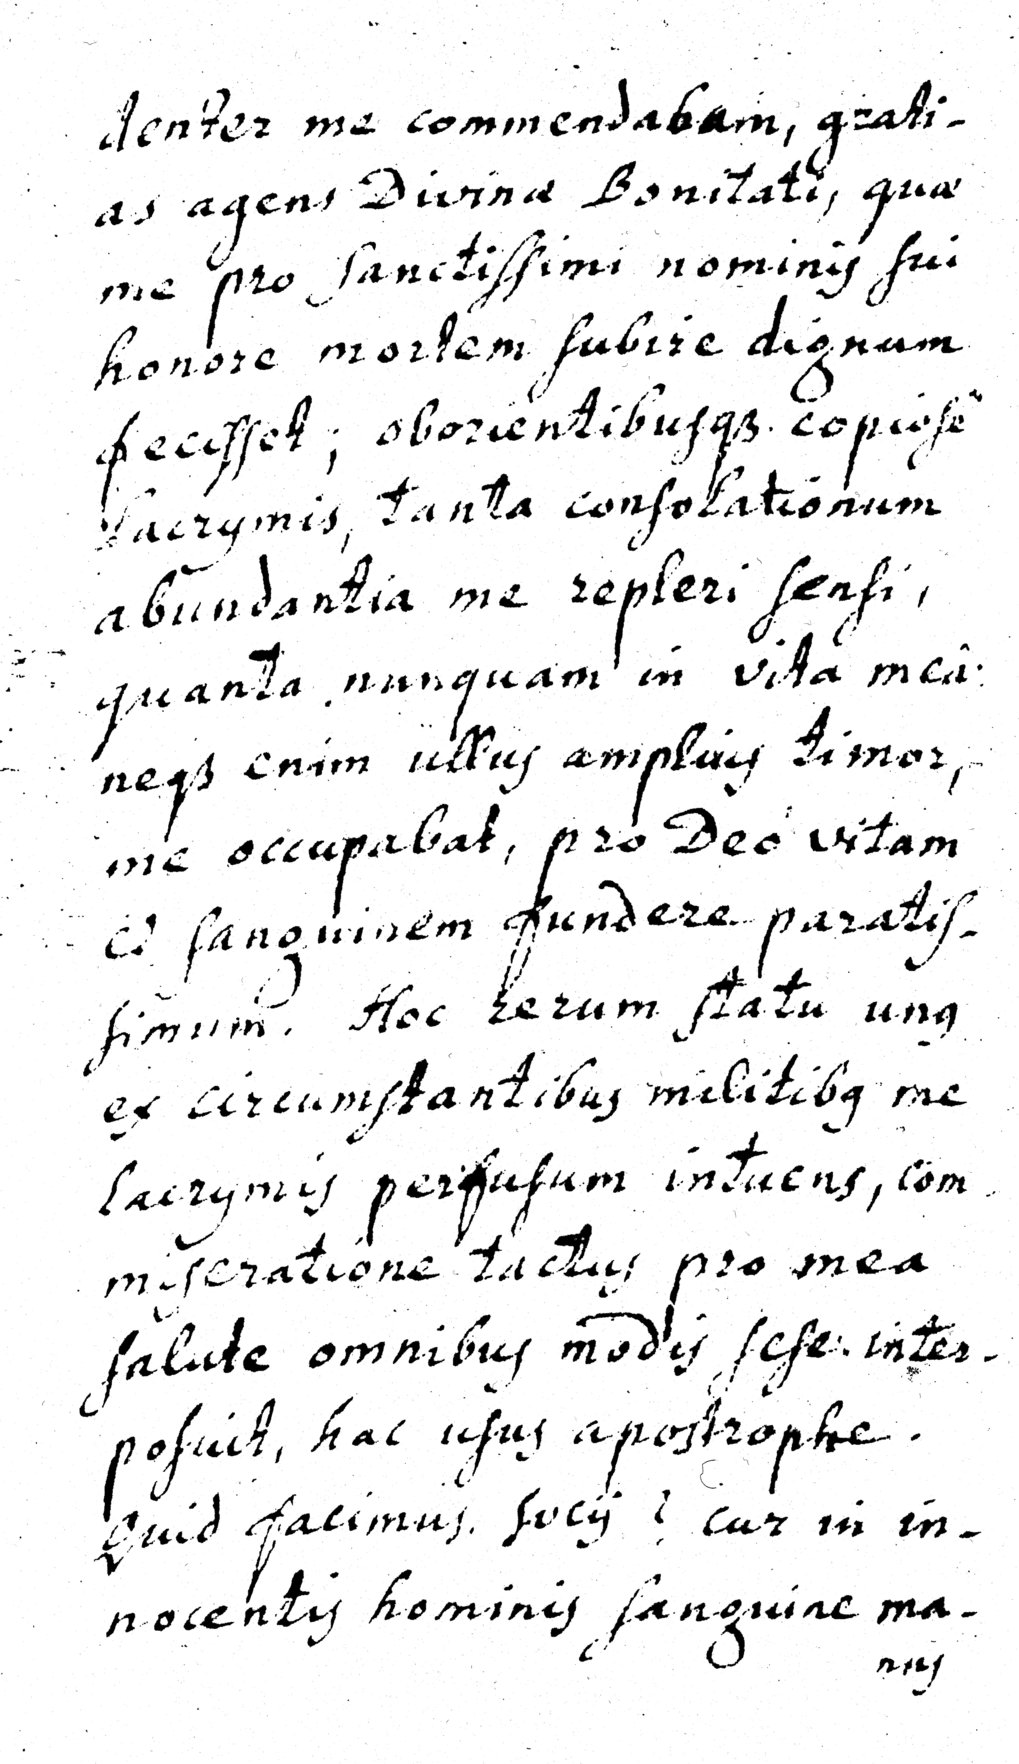 denter me commendabam, grati-
as agens Divinæ Bonitati, quæ
me pro sanctissimi nominis sui
honore mortem subire dignum
fecisset; oborientibusqȝ copiosè
lacrymis, tanta consolationum
abundantia me repleri sensi,
quanta nunquam in vita meâ:
neqȝ enim ullus amplius timor,
me occupabat, pro Deo vitam
et sanguinem fundere paratis-
simum. Hoc rerum statu unꝯ
ex circumstantibus militibꝯ me
lacrymis perfusum intuens, com
miseratione tactus pro mea
salute omnibus modis sese inter-
posuit, hac usus apostrophe.
Quid facimus socij? cur in in-
nocentis hominis sanguine ma-
nus